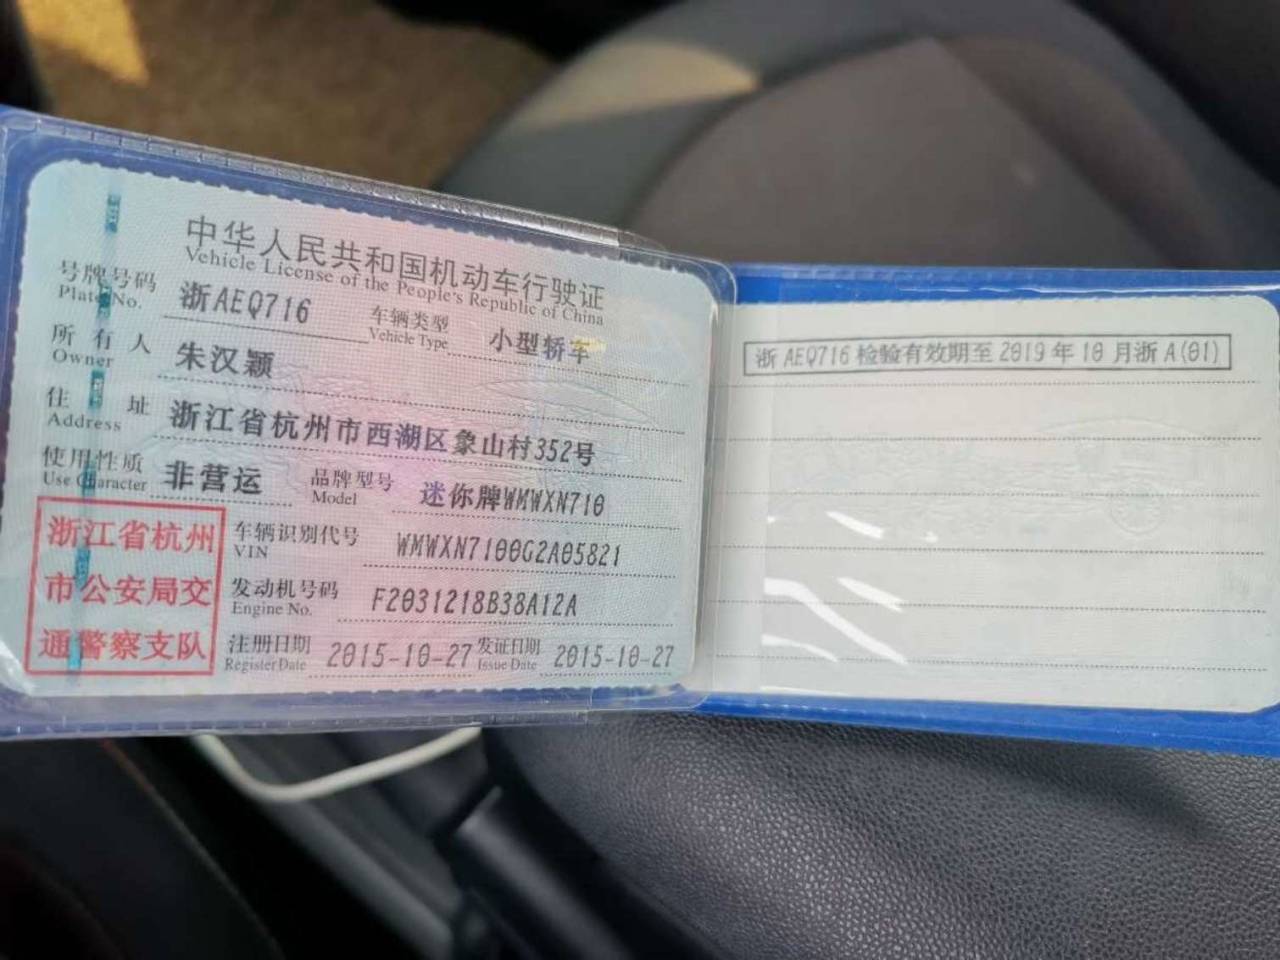 中华人民共和国机动车行驶证
Vehicle License of the People's Republic of China
号牌号码 浙AEQ716 车辆类型 小型轿车
Plate No. Vehicle Type
所有人 朱汉颖
Owner
住址 浙江省杭州市西湖区象山村352号
Address
使用性质 非营运 品牌型号 迷你牌WMWXN710
Use Character Model
浙江省杭州
市公安局交
通警察支队
车辆识别代号 WMWXN7100G2A05821
VIN
发动机号码 F2031218B38A12A
Engine No.
注册日期 2015-10-27 发证日期 2015-10-27
Register Date Issue Date
浙AEQ716检验有效期至2019年10月浙A(01)